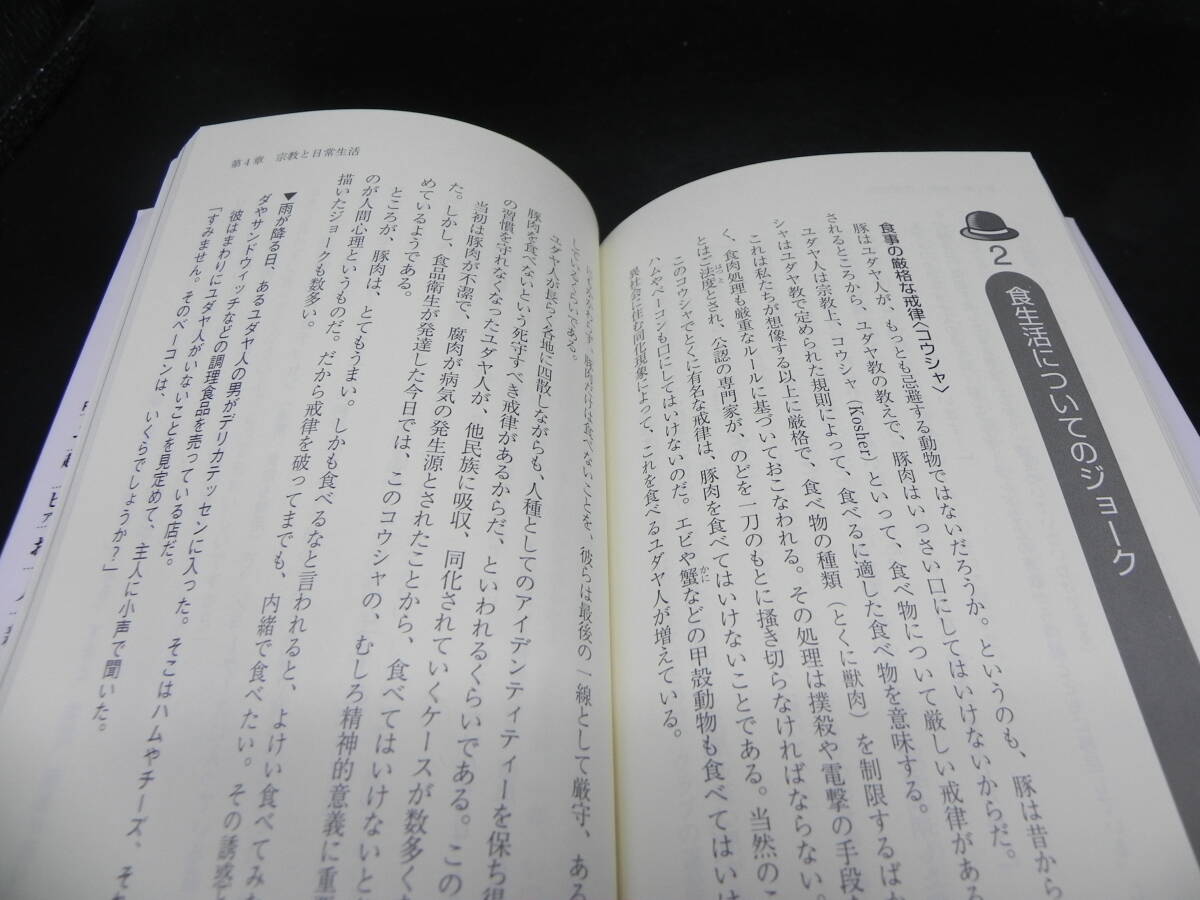 2
食生活についてのジョーク
食事の厳格な戒律〈コウシャ〉
豚はユダヤ人が、もっとも忌避する動物ではないだろうか。というのも、豚は昔から
されるところから、ユダヤ教の教えで、豚肉はいっさい口にしてはいけないからだ。
ユダヤ人は宗教上、コウシャ（Kosher）といって、食べ物について厳しい戒律がある
シャはユダヤ教で定められた規則によって、食べるに適した食べ物を意味する。
これは私たちが想像する以上に厳格で、食べ物の種類（とくに獣肉）を制限するばか
く、食肉処理も厳重なルールに基づいておこなわれる。その処理は撲殺や電撃の手段
とはご法度とされ、公認の専門家が、のどを一刀のもとに掻き切らなければならない。
このコウシャでとくに有名な戒律は、豚肉を食べてはいけないことである。当然のこ
ハムやベーコンも口にしてはいけないのだ。エビや蟹などの甲殻動物も食べてはいけ
異社会に住む同化現象によって、これを食べるユダヤ人が増えている。
第4章 宗教と日常生活
豚肉だけは食べないことを、彼らは最後の一線として厳守、ある
しているくらいである。
ユダヤ人が長らく各地に四散しながらも、人種としてのアイデンティティーを保ち得
豚肉を食べないという死守すべき戒律があるからだ、といわれるくらいである。この
の習慣を守れなくなったユダヤ人が、他民族に吸収、同化されていくケースが数多く
た。しかし、食品衛生が発達した今日では、このコウシャの、むしろ精神的意義に重
当初は豚肉が不潔で、腐肉が病気の発生源とされたことから、食べてはいけないと
めているようである。
ところが、豚肉は、とてもうまい。しかも食べるなと言われると、よけい食べてみた
のが人間心理というものだ。だから戒律を破ってまでも、内緒で食べたい。その誘惑
描いたジョークも数多い。
▼雨が降る日、あるユダヤ人の男がデリカテッセンに入った。そこはハムやチーズ、そ
ダやサンドウィッチなどの調理食品を売っている店だ。
彼はまわりにユダヤ人がいないことを見定めて、主人に小声で聞いた。
「すみません。そのベーコンは、いくらでしょうか？」